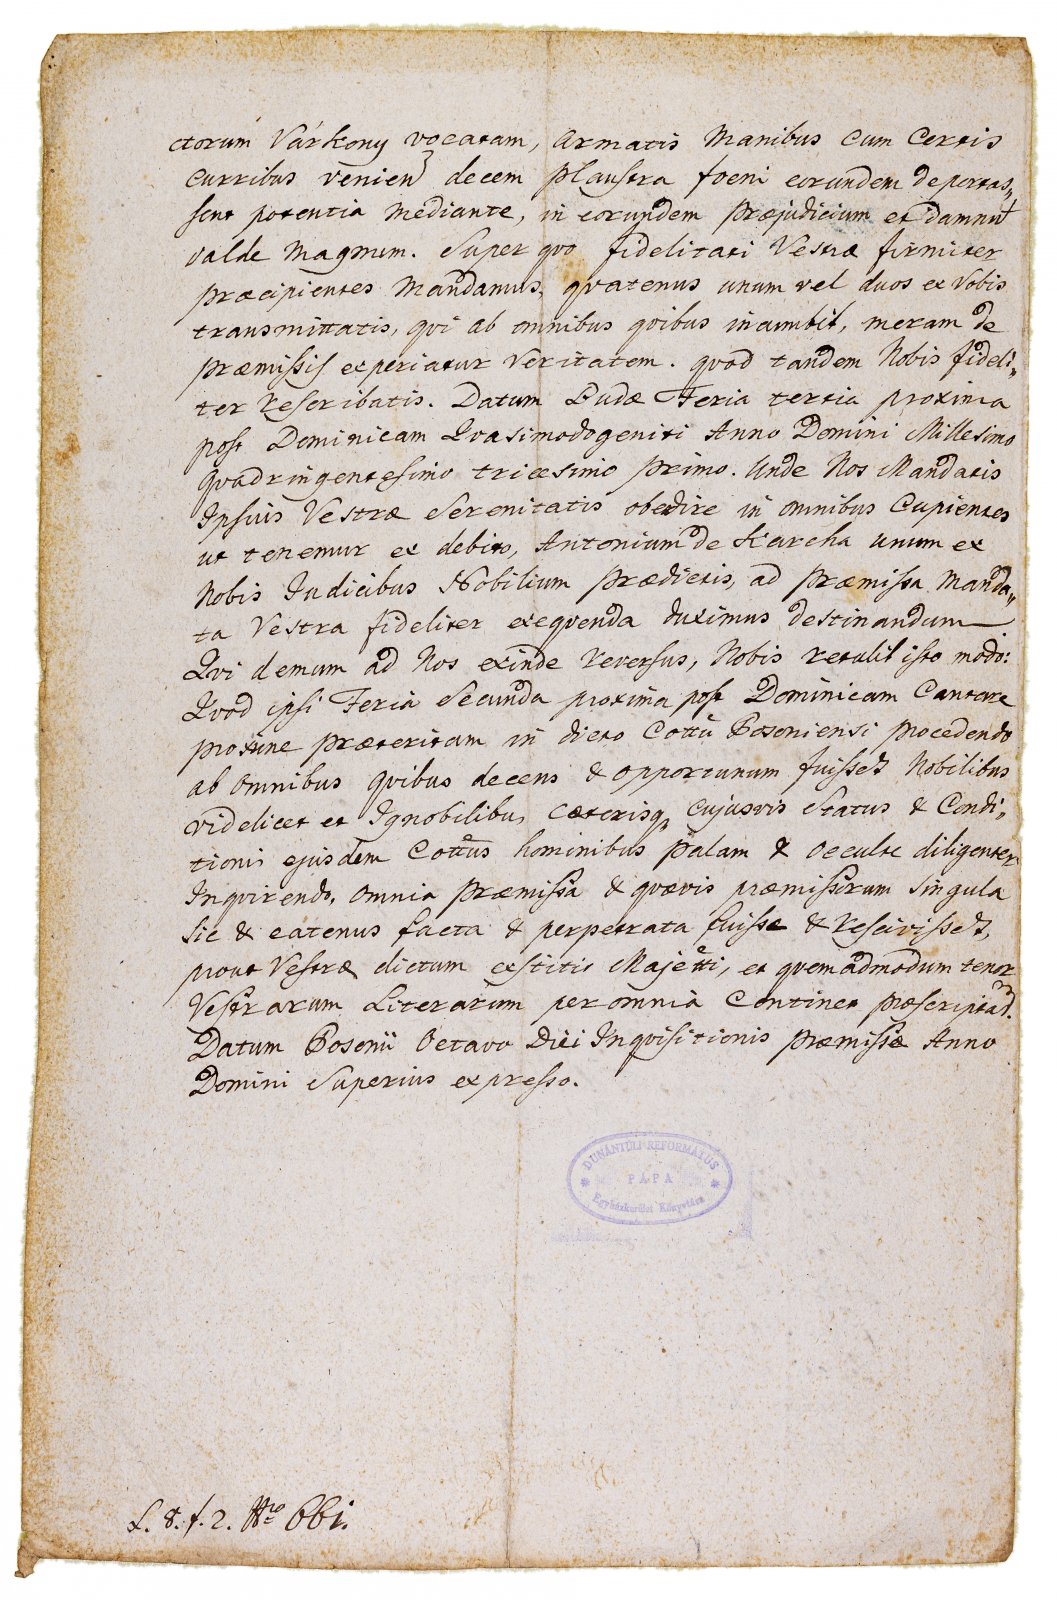 ctorum Várkony vocatam, armatis Manibus cum certis
curribus venien decem plaustra foeni eorundem deportas„
sent potentia mediante, in eorundem præjudicium et damnū
valde magnum. Super qvo fidelitati Vestræ firmiter
præcipientes Mandamus, qvatenus unum vel duos ex Vobis
transmittatis, qvi ab omnibus qvibus incumbit, meram de
præmissis experiatur Veritatem. qvod tandem Nobis fideli„
ter rescribatis. Datum Budæ Feria tertia proxima
post Dominicam Qvasimodogeniti Anno Domini Millesimo
Qvadringentesimo tricesimo primo. Unde Nos Mandatis
Ipsius Vestræ Serenitatis obedire in omnibus Cupientes
ut tenemur ex debito, Antonium de Karcha unum ex
Nobis Judicibus Nobilium prædictis, ad præmissa Manda„
ta Vestra fideliter exeqvenda duximus destinandum
Qvi demum ad Nos exinde reversus, Nobis retulit isto modo:
Qvod ipsi Feria Secunda proxima post Dominicam Cantate
proxime præteritam in dicto Cottū Posoniensi procedendo
ab omnibus qvibus decens & opportunum fuisset Nobilibus
videlicet et Ignobilibus cæterisq cujusvis Status & Condi„
tionis ejusdem Cottūs hominibus palam & occulte diligenter
Inqvirendo, omnia præmissa & qvævis præmissorum singula
sic & eatenus facta & perpetrata fuisse & rescivisset,
prout Vestræ dictum exstitit Majetti, et qvemadmodum tenor
Vestrarum Literarum per omnia Continet præscriptar.
Datum Posonii Octavo Diei Inqvisitionis præmissæ Anno
Domini Superius expresso.
DUNÁNTÚLI REFORMÁTUS
PÁPA
Egyházkerület Könyvtára
L. 8. f. 2. Nro 661.